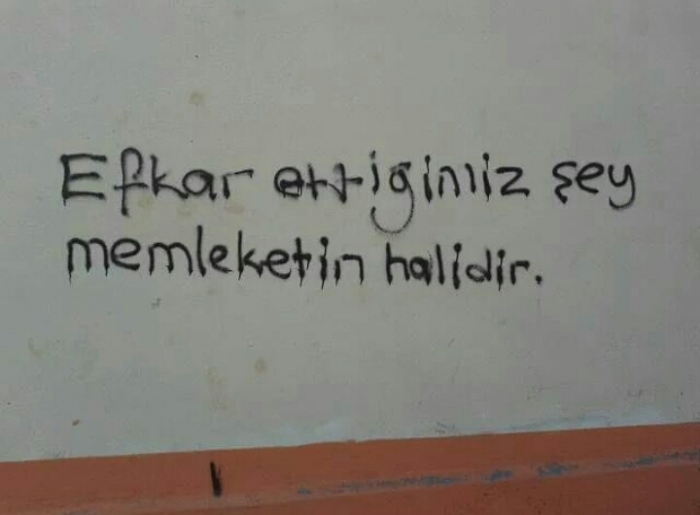 Efkar ettiginiiz şey
memleketin halidir.